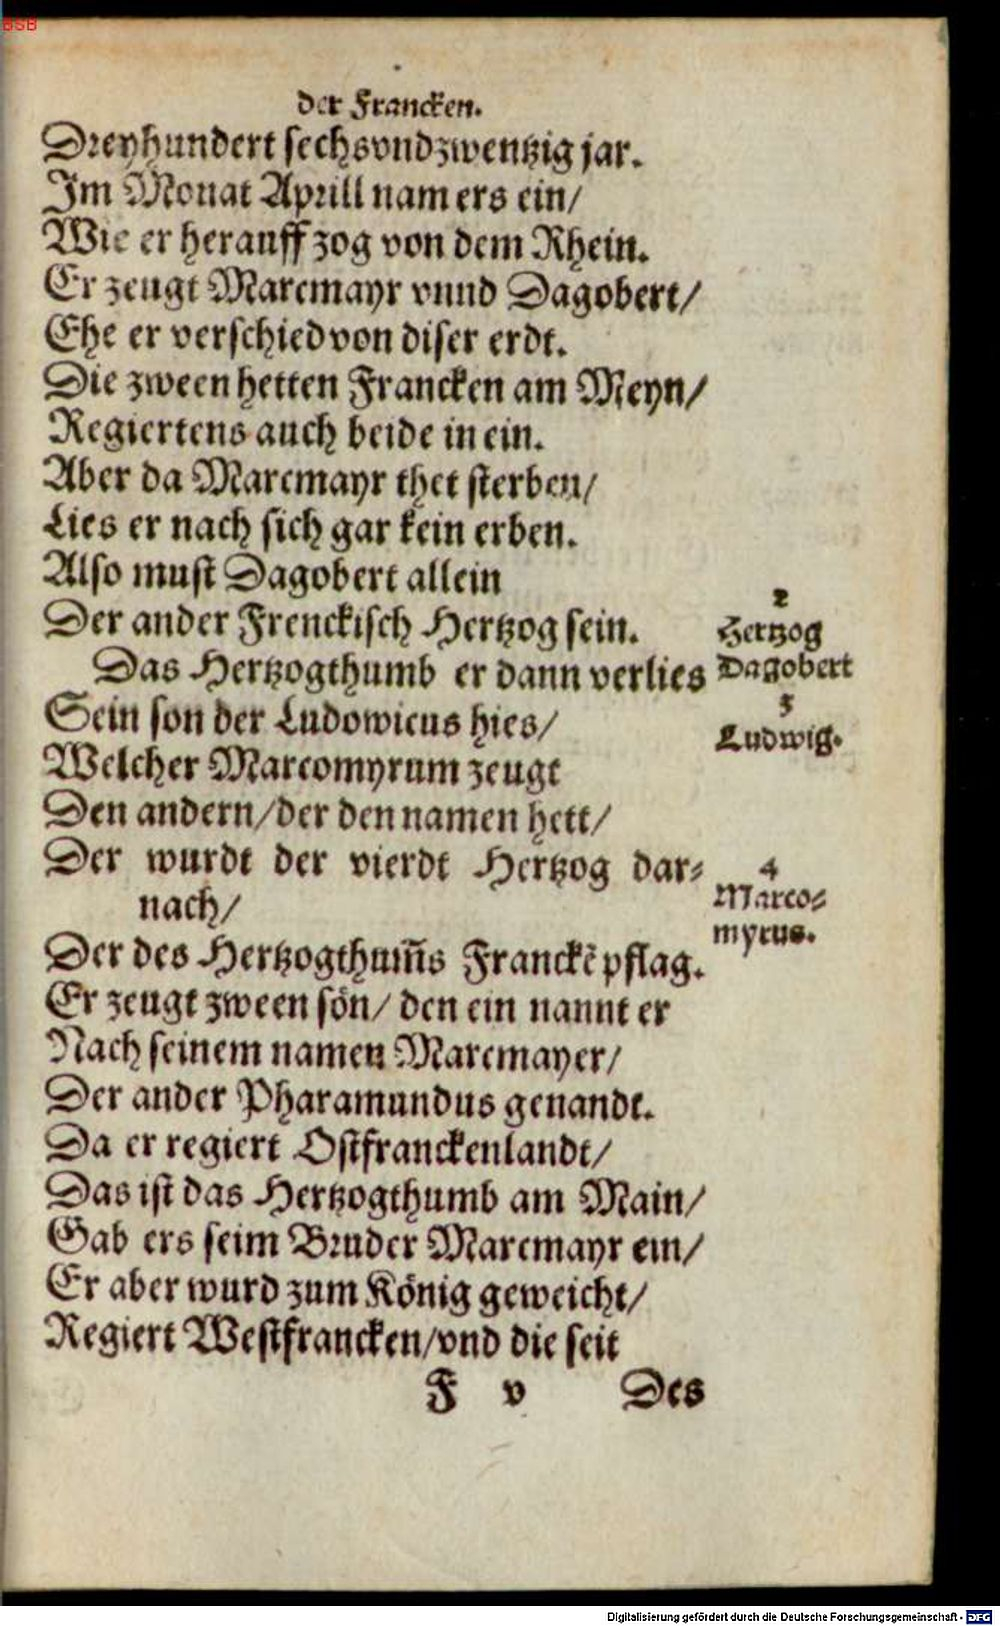 BSB
der Francken.
Dreyhundert sechsvndzwentzig jar.
Im Monat Aprill nam ers ein/
Wie er herauff zog von dem Rhein.
Er zeugt Marcmayr vnnd Dagobert/
Ehe er verschied von diser erdt.
Die zween hetten Francken am Meyn/
Regiertens auch beide in ein.
Aber da Marcmayr thet sterben/
Lies er nach sich gar kein erben.
Also must Dagobert allein
Der ander Frenckisch Hertzog sein.
2
Hertzog
Dagobert
Das Hertzogthumb er dann verlies
3
Ludwig.
Sein son der Ludowicus hies/
Welcher Marcomyrum zeugt
Den andern/der den namen hett/
Der wurdt der vierdt Hertzog dar⸗
nach/
4
Marco⸗
myrus.
Der des Hertzogthum̃s Franckẽ pflag.
Er zeugt zween sön/ den ein nannt er
Nach seinem namen Marcmayer/
Der ander Pharamundus genandt.
Da er regiert Ostfranckenlandt/
Das ist das Hertzogthumb am Main/
Gab ers seim Bruder Marcmayr ein/
Er aber wurd zum König geweicht/
Regiert Westfrancken/vnd die seit
F v Des
Digitalisierung gefördert durch die Deutsche Forschungsgemeinschaft - DFG